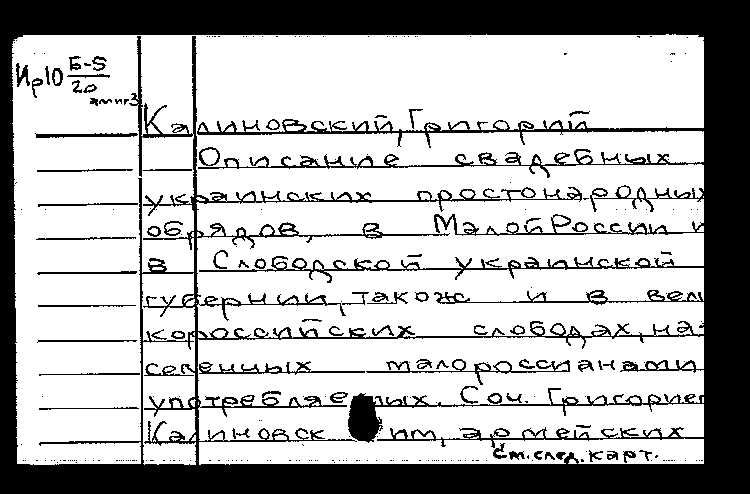 Ир10 Б-5
20
амиг3
Калиновский, Григорий
Описание свадебных
украинских простонародных
обрядов, в Малой России и
в Слободской украинской
губернии, також и в вели
короссийских слободах, на-
селенных малороссианами
употребляемых. Соч. Григорием
Калиновск им, армейских
См. след. карт.